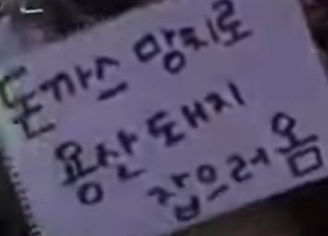 돈까스 망치로
용산 돼지
잡으러 옴